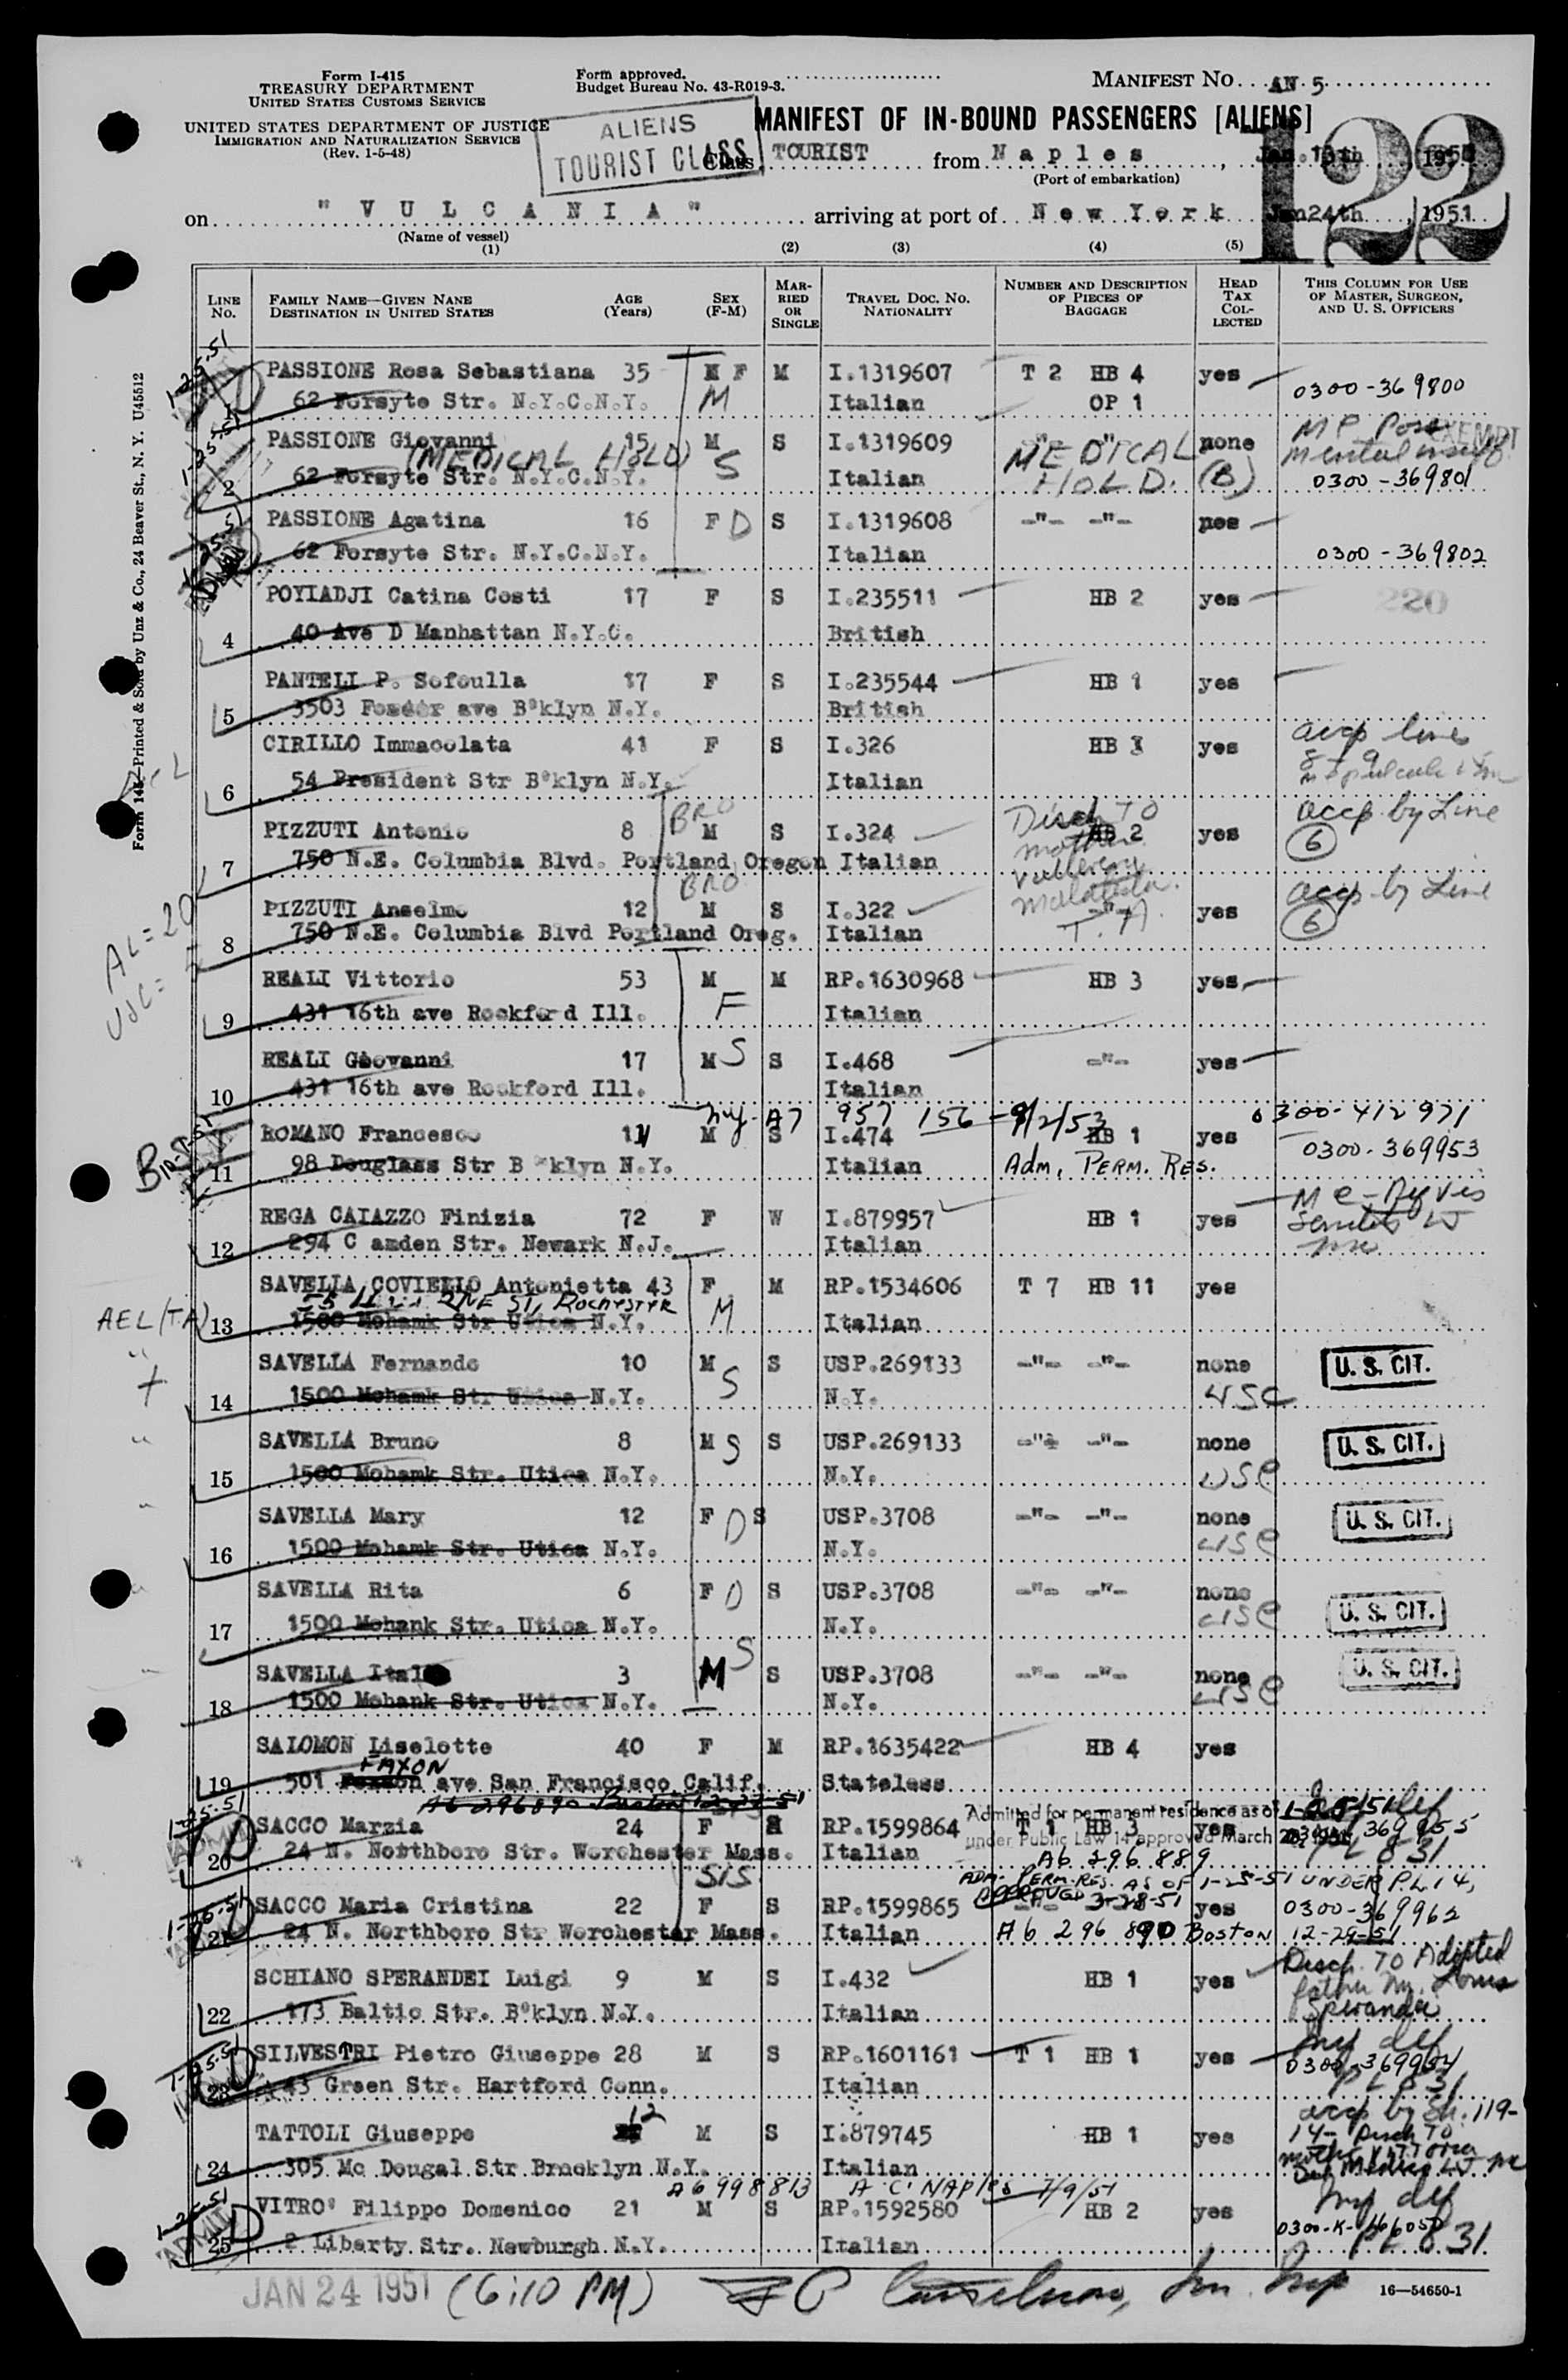 Form I-415
TREASURY DEPARTMENT
UNITED STATES CUSTOMS SERVICE
UNITED STATES DEPARTMENT OF JUSTICE
IMMIGRATION AND NATURALIZATION SERVICE
(Rev. 1-5-48)
Form approved.
Budget Bureau No. 43-R019-3.
MANIFEST No. AN 5
ALIENS
TOURIST CLASS
MANIFEST OF IN-BOUND PASSENGERS [ALIENS]
122
Class TOURIST from Naples, Jan. 13th, 1951
(Port of embarkation)
on "VULCANIA" arriving at port of New York Jan 24th, 1951
(Name of vessel)
(1) (2) (3) (4) (5)
LINE No. FAMILY NAME—GIVEN NANE DESTINATION IN UNITED STATES AGE (Years) SEX (F-M) MARRIED OR SINGLE TRAVEL DOC. NO. NATIONALITY NUMBER AND DESCRIPTION OF PIECES OF BAGGAGE HEAD TAX COLLECTED THIS COLUMN FOR USE OF MASTER, SURGEON, AND U. S. OFFICERS
Form 145—Printed & Sold by Unz & Co., 24 Beaver St., N. Y. U45512
1-25-51
PASSIONE Rosa Sebastiana 35 F M I.1319607 T 2 HB 4 yes
1 62 Forsyte Str. N.Y.C.N.Y. M Italian OP 1 0300-369800
1-25-51
PASSIONE Giovanni 15 M S I.1319609 " " none MP Poss EXEMPT
(MEDICAL HOLD) S MEDICAL HOLD. (B)
2 62 Forsyte Str. N.Y.C.N.Y. Italian 0300-369801
PASSIONE Agatina 16 F D S I.1319608 -"- -"-
62 Forsyte Str. N.Y.C.N.Y. Italian 0300-369802
POYIADJI Catina Costi 17 F S I.235511 HB 2 yes 220
4 40 Ave D Manhattan N.Y.C. British
PANTELI P. Sofoulla 17 F S I.235544 HB 1 yes
5 3503 ave B'klyn N.Y. British
CIRILLO Immacolata 41 F S I.326 HB yes accp lines
6 54 President Str B'klyn N.Y. Italian
PIZZUTI Antonio 8 BRO M S I.324 HB 2 yes accp. by Line (6)
Disch TO mother
7 750 N.E. Columbia Blvd. Portland Oregon Italian
PIZZUTI Anselmo 12 BRO M S I.322 -"- yes accp. by Line (6)
8 750 N.E. Columbia Blvd Portland Oreg. Italian T.A.
AL=20
USC= 5
REALI Vittorio 53 M M RP.1630968 HB 3 yes
9 431 16th ave Rockford Ill. F Italian
REALI Giovanni 17 M S S I.468 -"- yes
10 431 16th ave Rockford Ill. Italian
A7 957 156 - 9/2/53 0300-412971
ROMANO Francesco 11 M S I.474 HB 1 yes
11 98 Douglass Str B klyn N.Y. Italian Adm. PERM. RES. 0300-369953
REGA CAIAZZO Finizia 72 F W I.879957 HB 1 yes
12 294 C amden Str. Newark N.J. Italian
SAVELLA COVIELLO Antonietta 43 F M RP.1534606 T 7 HB 11 yes
ST, ROCHESTER
AEL (T.A) 13 1500 Mohamk Str Utica N.Y. M Italian
SAVELLA Fernando 10 M S USP.269133 -"- -"- none U. S. CIT.
14 1500 Mohamk Str Utica N.Y. S N.Y. USC
SAVELLA Bruno 8 M S S USP.269133 -"- -"- none U. S. CIT.
15 1500 Mohamk Str. Utica N.Y. N.Y. USC
SAVELLA Mary 12 F D S USP.3708 -"- -"- none U. S. CIT.
16 1500 Mohamk Str. Utica N.Y. N.Y. USC
SAVELLA Rita 6 F D S USP.3708 -"- -"- none U. S. CIT.
17 1500 Mohank Str. Utica N.Y. N.Y. USC
SAVELLA Ital 3 M S S USP.3708 -"- -"- none U. S. CIT.
18 1500 Mohank Str. Utica N.Y. N.Y. USC
SALOMON Liselotte 40 F M RP.1635422 HB 4 yes
FAXON
19 501 ave San Francisco Calif. Stateless
A6 296890 Boston 12-29-51
1-25-51
SACCO Marzia 24 F RP.1599864 T 1 HB 3 yes
Admitted for permanent residence as of 1-25-51
under Public Law 14 approved March 28, 1951
20 24 N. Northboro Str. Worchester Mass. SIS Italian A6 296 889 PL 831
ADM. PERM. RES. AS OF 1-25-51 UNDER P.L 14,
APPROVED 3-28-51
1-25-51
SACCO Maria Cristina 22 F S RP.1599865 yes 0300-369962
21 24 N. Northboro Str Worchester Mass. Italian A6 296 890 Boston 12-29-51
SCHIANO SPERANDEI Luigi 9 M S I.432 HB 1 yes Disch. TO Adopted father
22 173 Baltic Str. B'klyn N.Y. Italian
1-25-51
SILVESTRI Pietro Giuseppe 28 M S RP.1601161 T 1 HB 1 yes 0300-369954
23 43 Green Str. Hartford Conn. Italian PL 831
TATTOLI Giuseppe 12 M S I.879745 HB 1 yes accp by Sh. 119-14- Disch TO mother
24 305 Mc Dougal Str Brooklyn N.Y. Italian
A6 998813 A.C. NAPles 7/9/51
1-25-51
VITRO' Filippo Domenico 21 M S RP.1592580 HB 2 yes
25 2 Liberty Str. Newburgh N.Y. Italian PL 831
JAN 24 1951 (6:10 PM)
16—54650-1